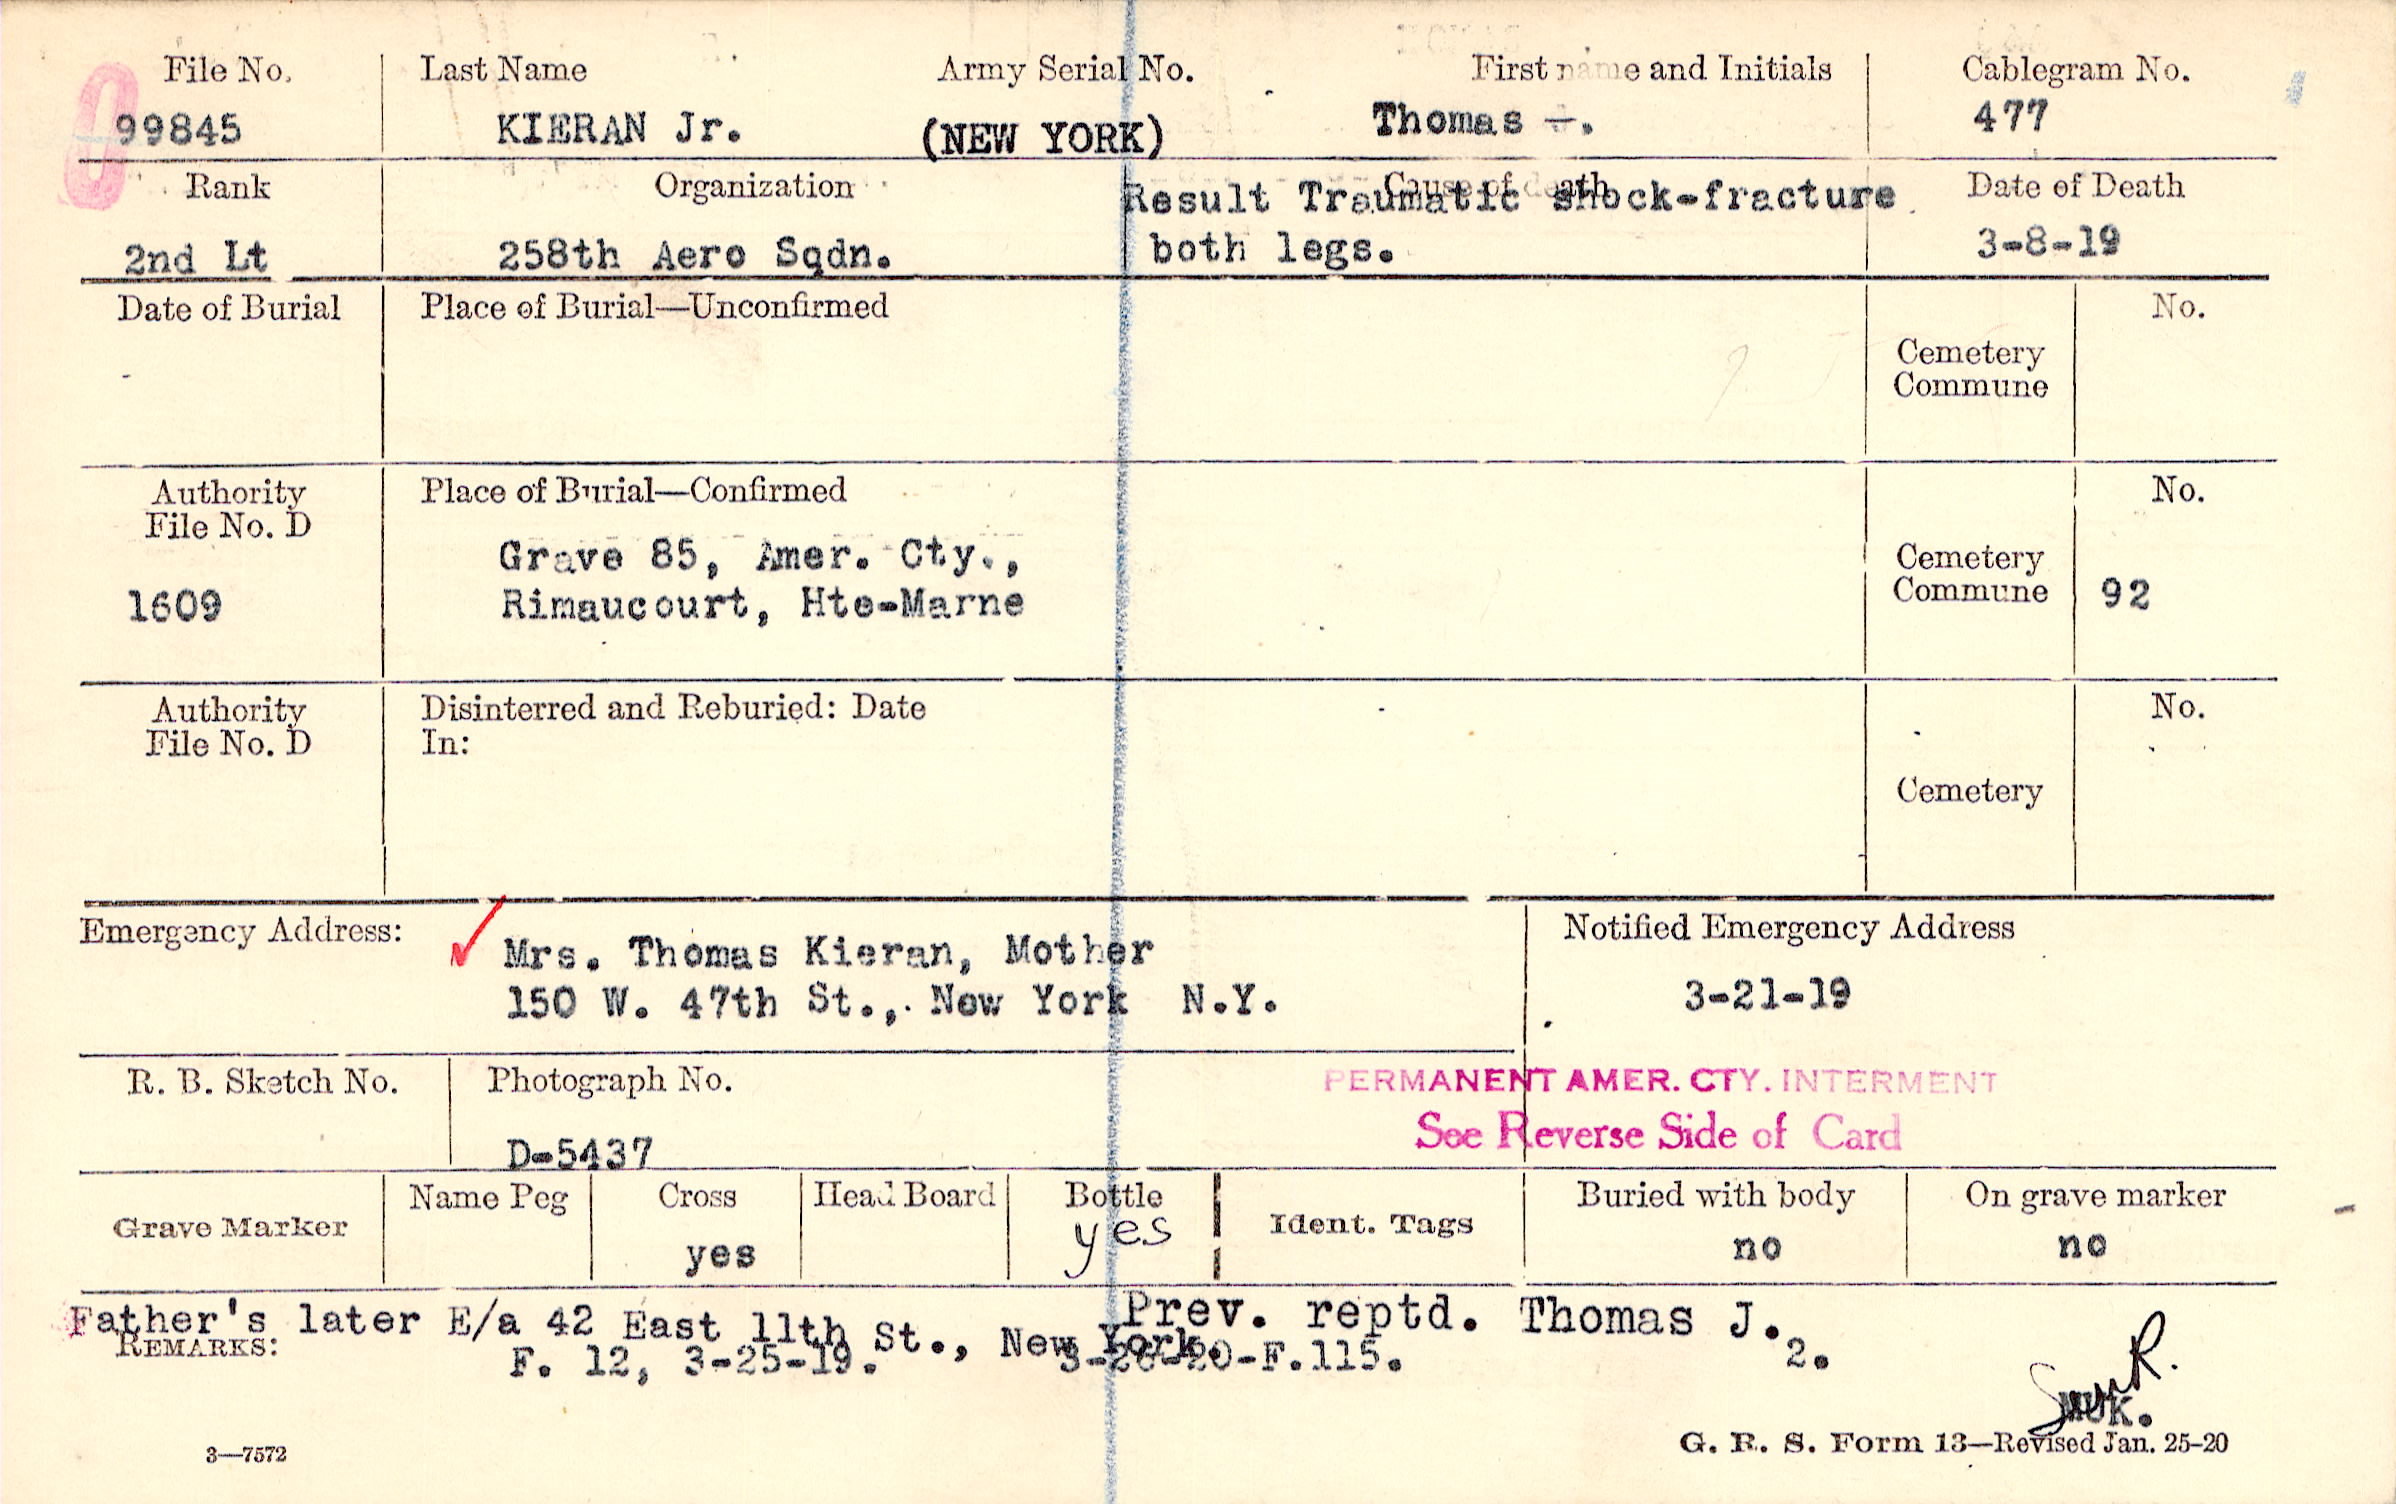 File No. Last Name Army Serial No. First name and Initials Cablegram No.
99845 KIERAN Jr. (NEW YORK) Thomas -. 477
Rank Organization Cause of death Date of Death
2nd Lt 258th Aero Sqdn. Result Traumatic shock-fracture both legs. 3-8-19
Date of Burial Place of Burial—Unconfirmed No.
Cemetery
Commune
Authority Place of Burial—Confirmed No.
File No. D
Grave 85, Amer. Cty., Cemetery
1609 Rimaucourt, Hte-Marne Commune 92
Authority Disinterred and Reburied: Date No.
File No. D In:
Cemetery
Emergency Address: Notified Emergency Address
Mrs. Thomas Kieran, Mother
150 W. 47th St., New York N.Y. 3-21-19
R. B. Sketch No. Photograph No. PERMANENT AMER. CTY. INTERMENT
See Reverse Side of Card
D-5437
Grave Marker Name Peg Cross Head Board Bottle Ident. Tags Buried with body On grave marker
yes yes no no
Father's later E/a 42 East 11th St., New York. Prev. reptd. Thomas J.
REMARKS: F. 12, 3-25-19. 3-26-20-F.115. 2.
R.
3—7572 G. R. S. Form 13—Revised Jan. 25-20